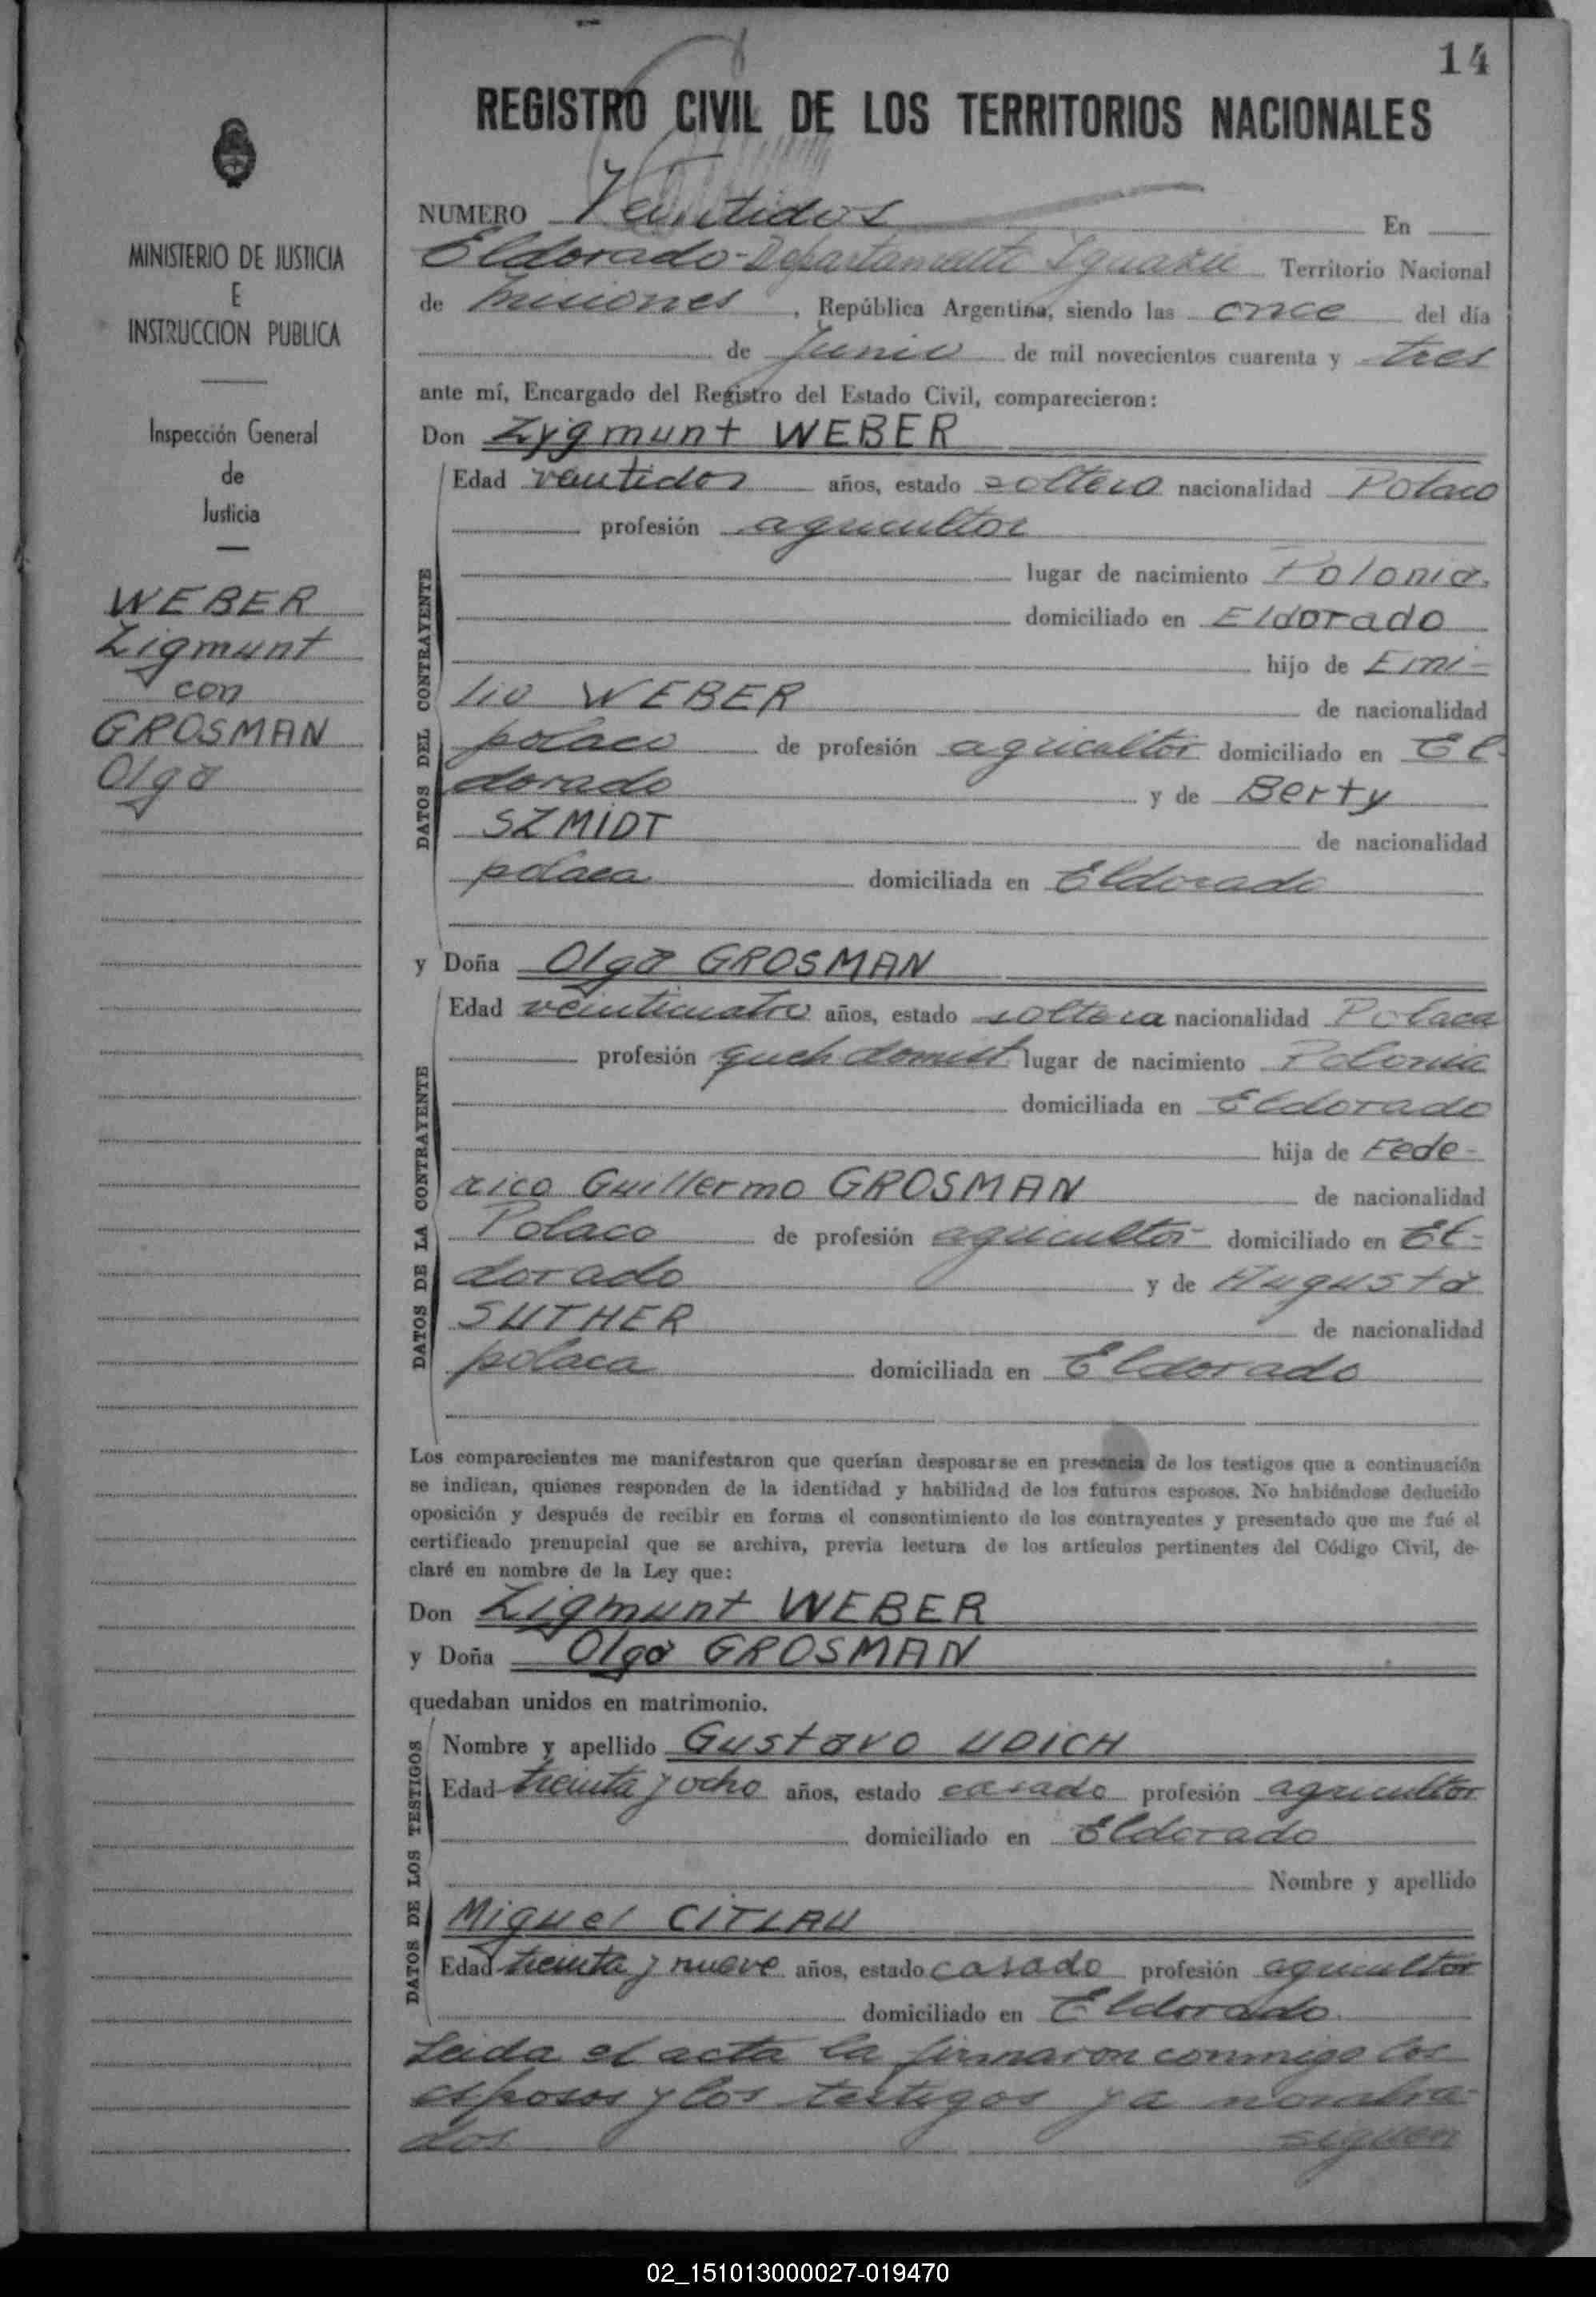 14
REGISTRO CIVIL DE LOS TERRITORIOS NACIONALES
MINISTERIO DE JUSTICIA
E
INSTRUCCION PUBLICA
Inspección General
de
Justicia
WEBER
Zigmunt
con
GROSMAN
Olga
NUMERO Veintidos En
Eldorado-Departamento Iguazú Territorio Nacional
de Misiones, República Argentina, siendo las once del día
de Junio de mil novecientos cuarenta y tres
ante mí, Encargado del Registro del Estado Civil, comparecieron:
Don Zygmunt WEBER
DATOS DEL CONTRAYENTE
Edad veintidos años, estado soltero nacionalidad Polaco
profesión agricultor
lugar de nacimiento Polonia.
domiciliado en Eldorado
hijo de Emi-
lio WEBER de nacionalidad
polaco de profesión agricultor domiciliado en El-
dorado y de Berty
SZMIDT de nacionalidad
polaca domiciliada en Eldorado
y Doña Olga GROSMAN
DATOS DE LA CONTRAYENTE
Edad veinticuatro años, estado soltera nacionalidad Polaca
profesión lugar de nacimiento Polonia
domiciliada en Eldorado
hija de Fede-
rico Guillermo GROSMAN de nacionalidad
Polaco de profesión agricultor domiciliado en El-
dorado y de Augusta
SUTHER de nacionalidad
polaca domiciliada en Eldorado
Los comparecientes me manifestaron que querían desposarse en presencia de los testigos que a continuación
se indican, quienes responden de la identidad y habilidad de los futuros esposos. No habiéndose deducido
oposición y después de recibir en forma el consentimiento de los contrayentes y presentado que me fué el
certificado prenupcial que se archiva, previa lectura de los artículos pertinentes del Código Civil, de-
claré en nombre de la Ley que:
Don Zigmunt WEBER
y Doña Olga GROSMAN
quedaban unidos en matrimonio.
DATOS DE LOS TESTIGOS
Nombre y apellido Gustavo UDICH
Edad treinta y ocho años, estado casado profesión agricultor
domiciliado en Eldorado
Nombre y apellido
Miguel CITLAU
Edad treinta y nueve años, estado casado profesión agricultor
domiciliado en Eldorado.
Leida el acta la firmaron conmigo los
esposos y los testigos ya nombra-
dos siguen
02_151013000027-019470